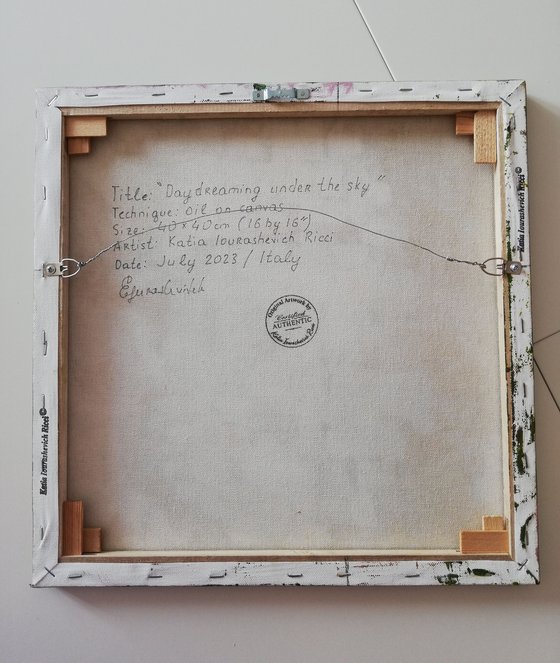 Title: "Daydreaming under the sky"
Technique: oil on canvas
Size: 40 x 40 cm (16 by 16")
Artist: Katia Iourashevich Ricci
Date: July 2023 / Italy
Original Artwork by
Certified
AUTHENTIC
Katia Iourashevich Ricci
Katia Iourashevich Ricci©
Katia Iourashevich Ricci©